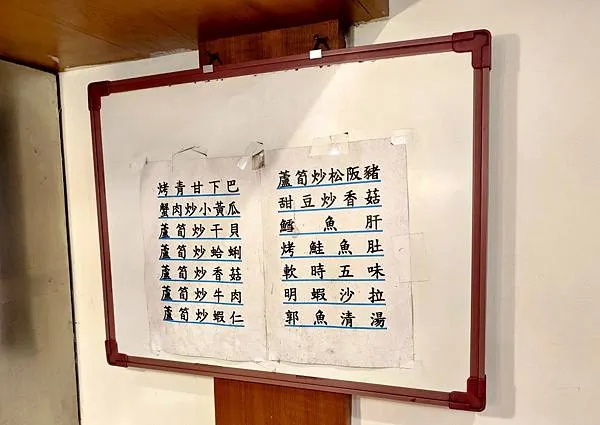 烤青甘下巴
蟹肉炒小黃瓜
蘆筍炒干貝
蘆筍炒蛤蜊
蘆筍炒香菇
蘆筍炒牛肉
蘆筍炒蝦仁
蘆筍炒松阪豬
甜豆炒香菇
鱈魚肝
烤鮭魚肚
軟時五味
明蝦沙拉
郭魚清湯